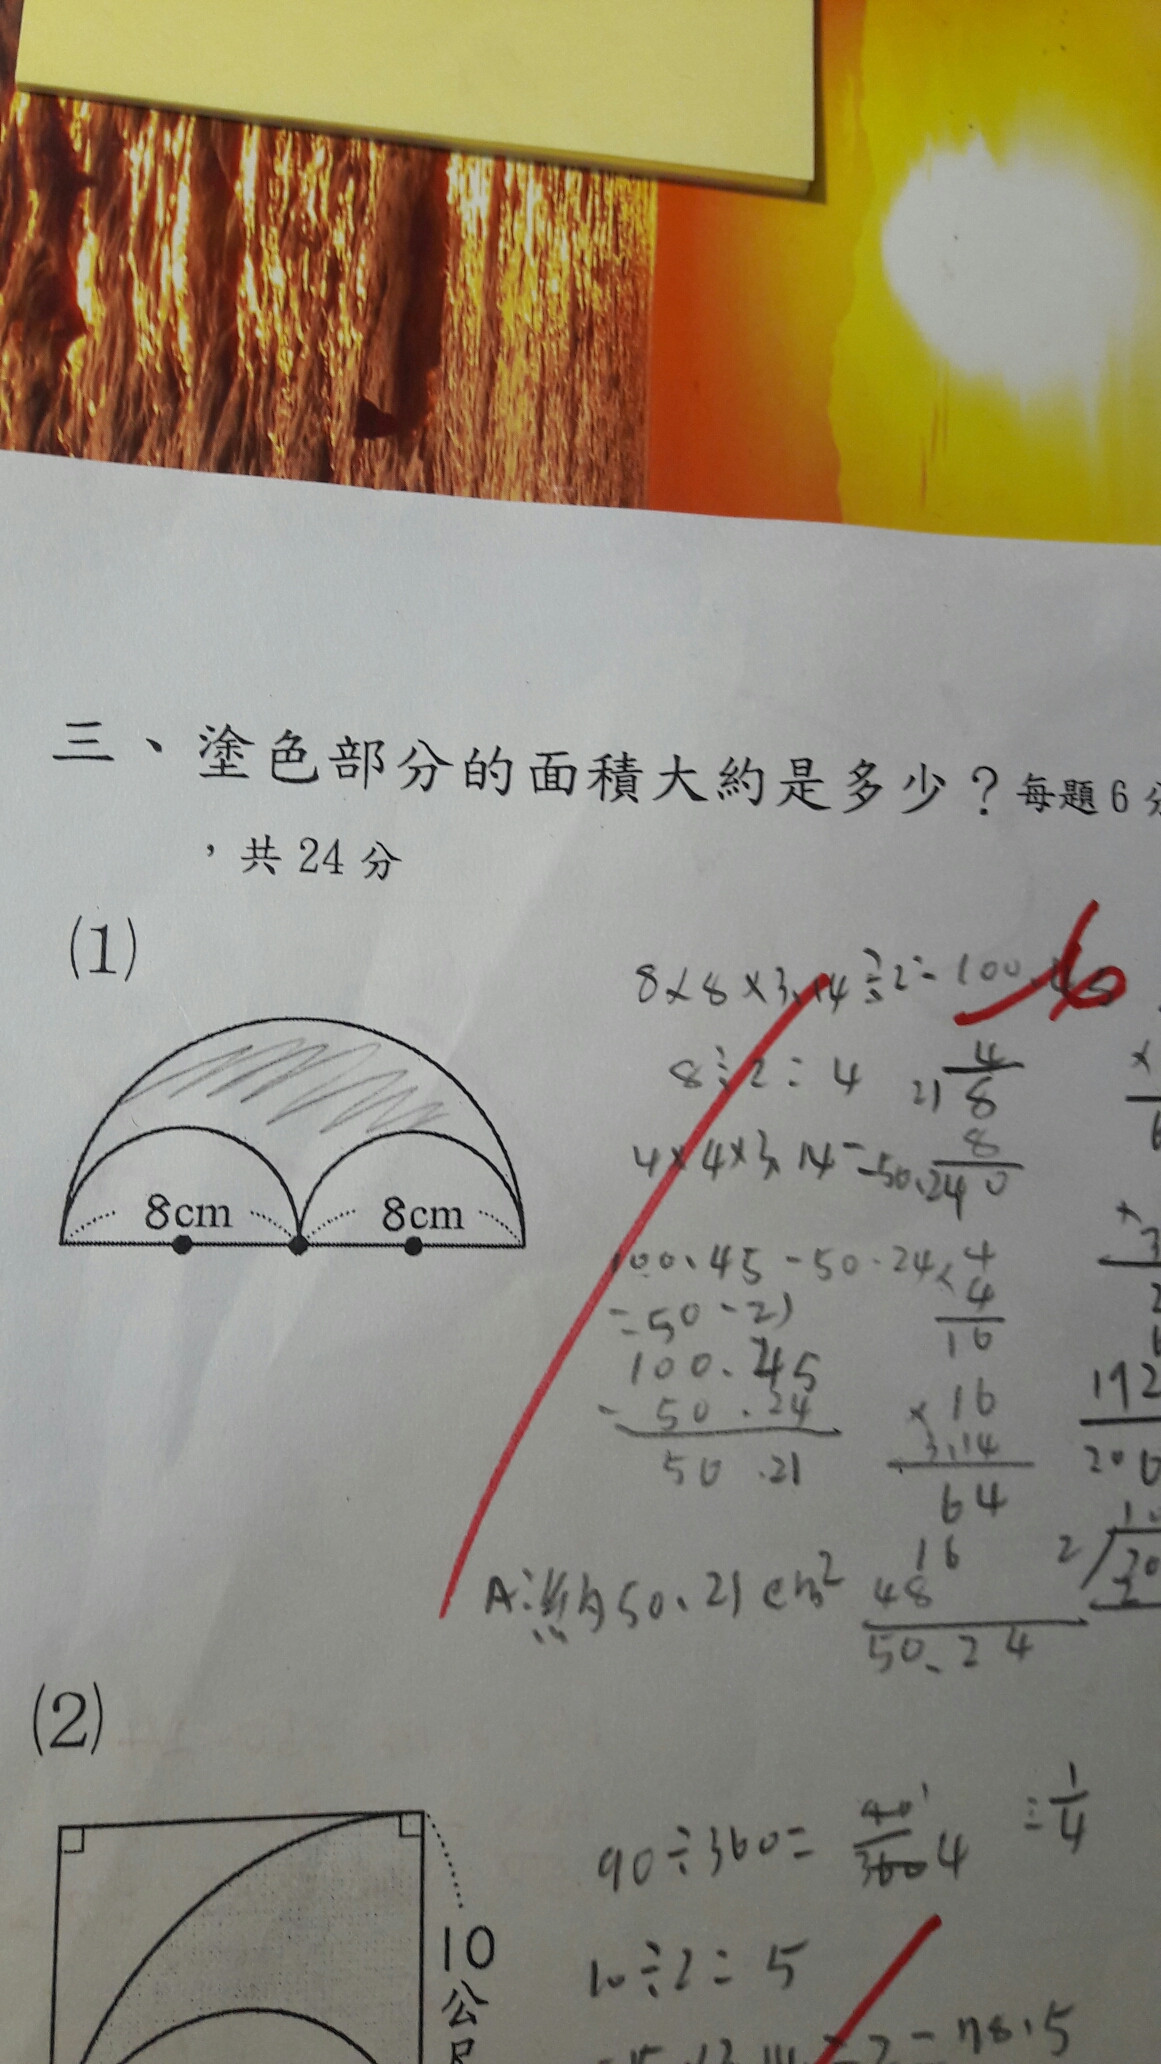 三、塗色部分的面積大約是多少？每題6分
，共24分
(1)
8cm
8cm
8×8×3.14÷2=100.45
6
8÷2=4
2)8
4
8
0
4×4×3.14=50.24
100.45-50.24
=50.21
100.45
-50.24
50.21
4
×4
16
×16
3.14
64
16
48
50.24
192
A:約50.21cm²
(2)
10
公
尺
90÷360=
4
=1/4
10÷2=5
78.5